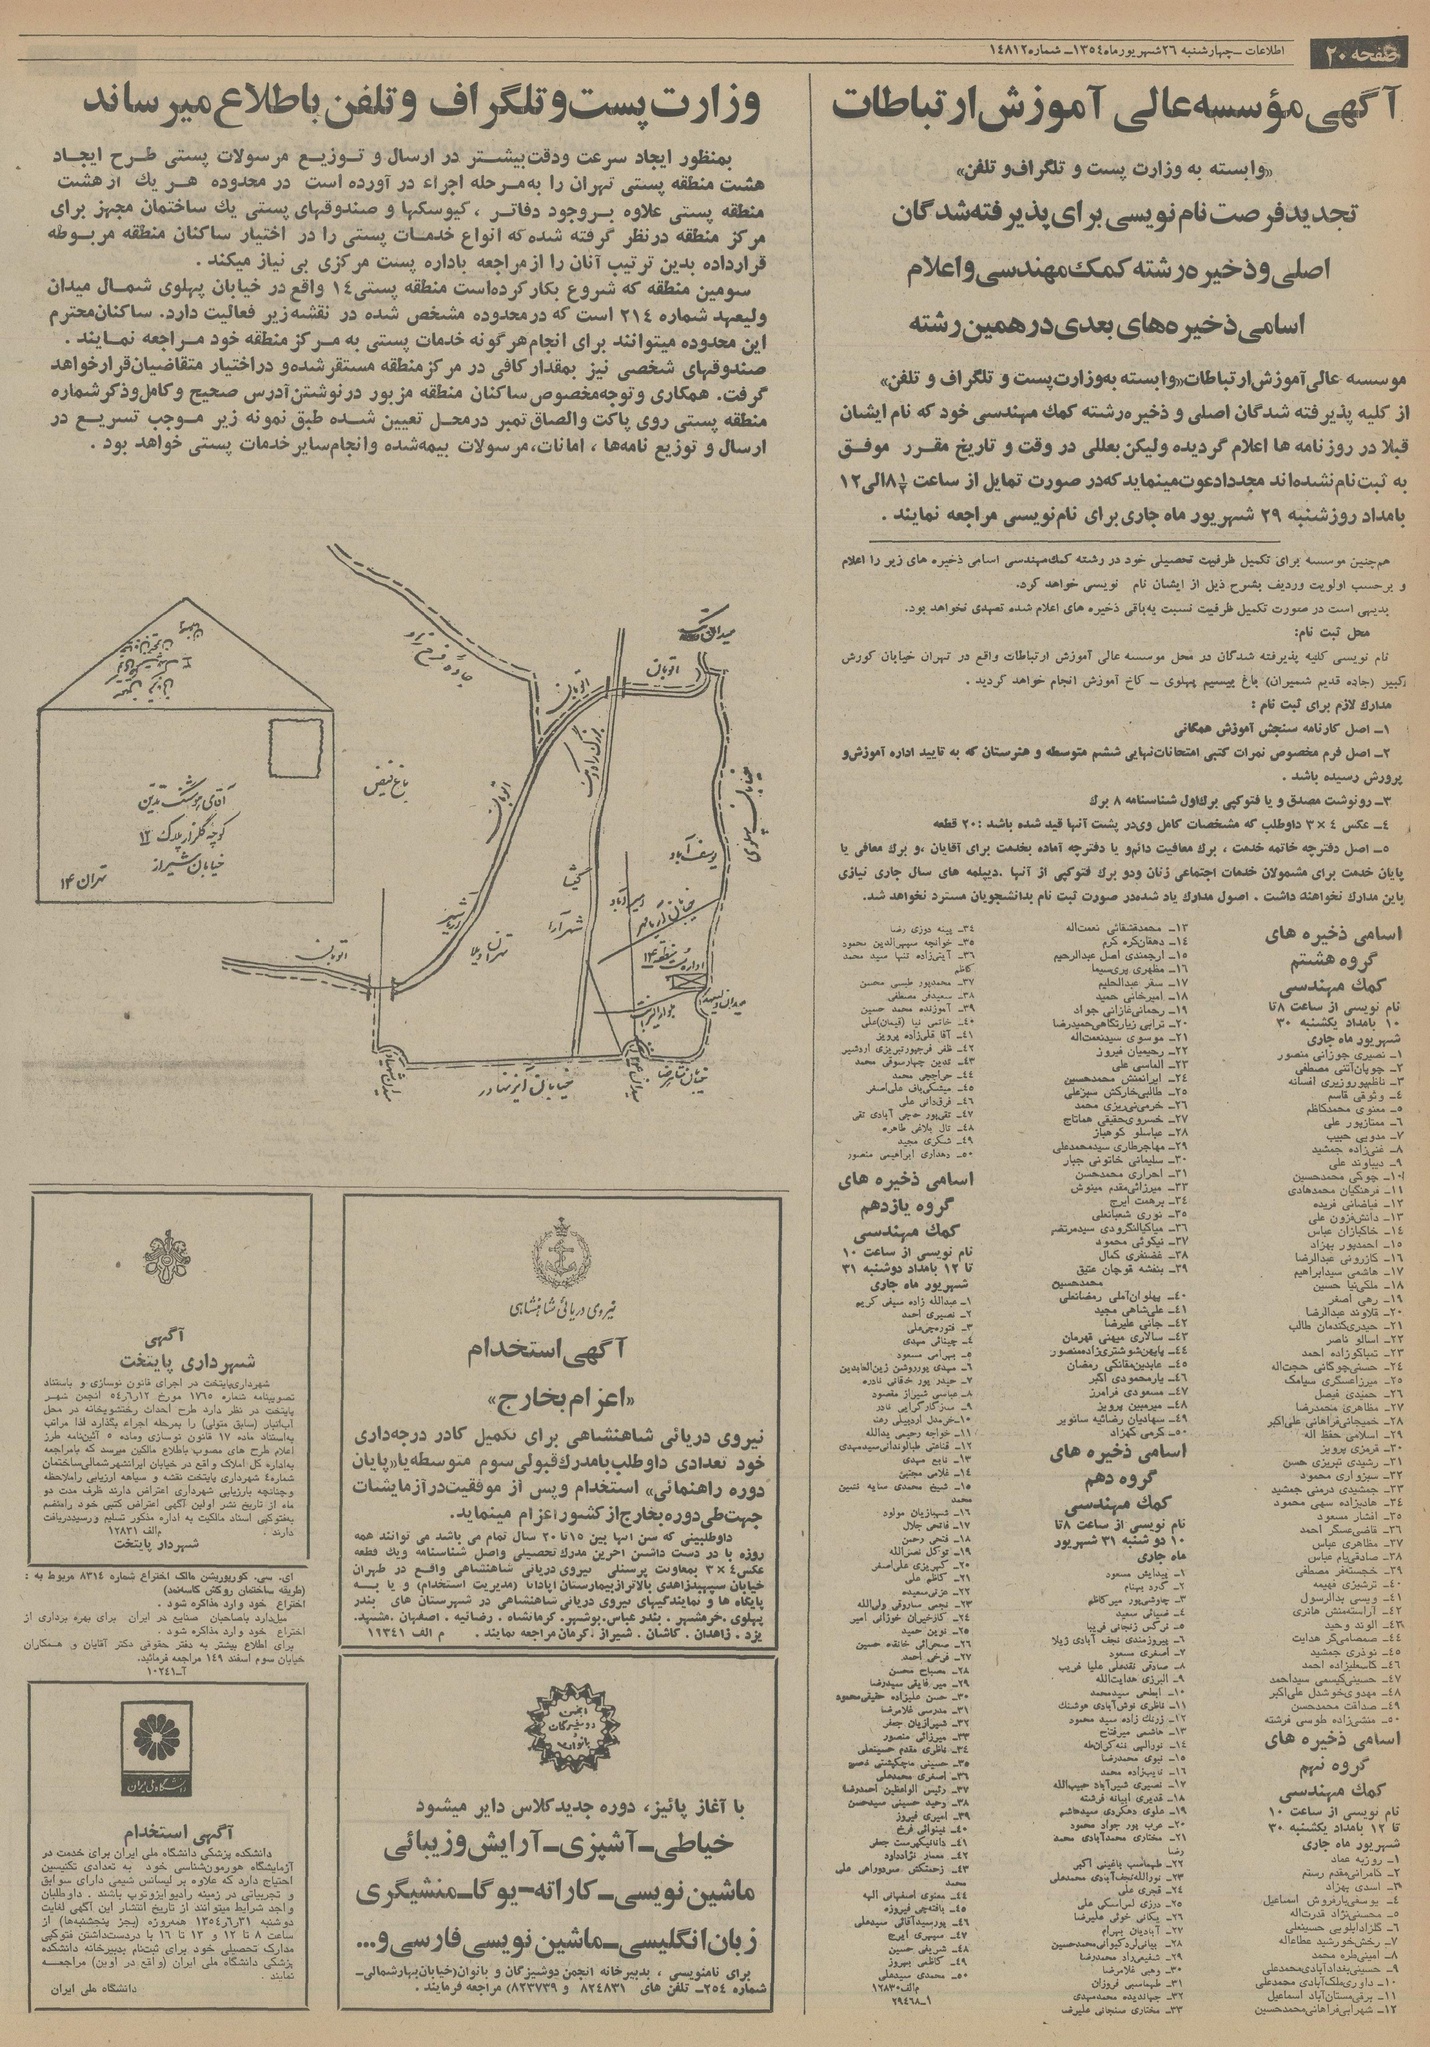 صفحه ۲۰
اطلاعات ـ چهارشنبه ۲۶ شهریور ماه ۱۳۵۴ ـ شماره ۱۴۸۱۲
آگهی مؤسسه عالی آموزش ارتباطات
«وابسته به وزارت پست و تلگراف و تلفن»
تجدید فرصت نام نویسی برای پذیرفته شدگان
اصلی و ذخیره رشته کمک مهندسی و اعلام
اسامی ذخیره های بعدی در همین رشته
موسسه عالی آموزش ارتباطات «وابسته به وزارت پست و تلگراف و تلفن»
از کلیه پذیرفته شدگان اصلی و ذخیره رشته کمک مهندسی خود که نام ایشان
قبلا در روزنامه ها اعلام گردیده ولیکن بعللی در وقت و تاریخ مقرر موفق
به ثبت نام نشده اند مجددا دعوت مینماید که در صورت تمایل از ساعت ۸½ الی ۱۲
بامداد روز شنبه ۲۹ شهریور ماه جاری برای نام نویسی مراجعه نمایند .
همچنین موسسه برای تکمیل ظرفیت تحصیلی خود در رشته کمک مهندسی اسامی ذخیره های زیر را اعلام
و برحسب اولویت وردیف بشرح ذیل از ایشان نام نویسی خواهد کرد.
بدیهی است در صورت تکمیل ظرفیت نسبت به باقی ذخیره های اعلام شده تعهدی نخواهد بود.
محل ثبت نام:
نام نویسی کلیه پذیرفته شدگان در محل موسسه عالی آموزش ارتباطات واقع در تهران خیابان کورش
کبیر (جاده قدیم شمیران) باغ بیسیم پهلوی ـ کاخ آموزش انجام خواهد گردید .
مدارك لازم برای ثبت نام :
۱ـ اصل کارنامه سنجش آموزش همگانی
۲ـ اصل فرم مخصوص نمرات کتبی امتحانات نهایی ششم متوسطه و هنرستان که به تایید اداره آموزش و
پرورش رسیده باشد .
۳ـ رونوشت مصدق و یا فتوکپی برك اول شناسنامه ۸ برك
۴ـ عکس ۴ × ۳ داوطلب که مشخصات کامل وی در پشت آنها قید شده باشد : ۲۰ قطعه
۵ـ اصل دفترچه خاتمه خدمت ، برك معافیت دائم و یا دفترچه آماده بخدمت برای آقایان ، و برك معافی یا
پایان خدمت برای مشمولان خدمات اجتماعی زنان و دو برك فتوکپی از آنها . دیپلمه های سال جاری نیازی
باین مدارك نخواهند داشت . اصول مدارك یاد شده در صورت ثبت نام بدانشجویان مسترد نخواهد شد.
اسامی ذخیره های
گروه هشتم
کمك مهندسی
نام نویسی از ساعت ۸ تا
۱۰ بامداد یکشنبه ۳۰
شهریور ماه جاری
۱ـ نصیری جوزانی منصور
۳ـ ناظم پور وزیری افسانه
۴ـ وثوقی قاسم
۵ـ معنوی محمد کاظم
۶ـ ممتاز پور علی
۸ـ غنی زاده جمشید
۱۱ـ فرهنگیان محمدهادی
۱۳ـ دانش فزون علی
۱۴ـ خاکبازان عباس
۱۵ـ احمدپور بهزاد
۱۶ـ کازرونی عبدالرضا
۱۷ـ هاشمی سید ابراهیم
۱۸ـ ملکی نیا حسین
۱۹ـ رهی اصغر
۲۰ـ قلاوند عبدالرضا
۲۱ـ حیدری کندمان طالب
۲۲ـ اسالو ناصر
۲۳ـ تمباکوزاده احمد
۲۵ـ میرزا عسگری سیامک
۲۶ـ حمیدی فیصل
۲۷ـ مظاهری محمدرضا
۲۹ـ اسلامی حفظ اله
۳۰ـ قرمزی پرویز
۳۱ـ رشیدی تبریزی حسن
۳۲ـ سبزواری محمود
۳۵ـ افشار مسعود
۳۶ـ قاضی عسگر احمد
۳۷ـ مظاهری عباس
۳۸ـ صادقی پام عباس
۳۹ـ خجسته فر مصطفی
۴۰ـ ترشیزی فهیمه
۴۳ـ الوند وحید
۴۵ـ نوذری جمشید
۴۹ـ صداقت محمدحسن
۵۰ـ منشی زاده طوسی فرشته
اسامی ذخیره های
گروه نهم
کمك مهندسی
نام نویسی از ساعت ۱۰
تا ۱۲ بامداد یکشنبه ۳۰
شهریور ماه جاری
۱ـ روزبه عماد
۲ـ کامرانی مقدم رستم
۳ـ اسدی بهزاد
۴ـ یوسفی بارفروش اسماعیل
۵ـ محسنی نژاد قدرت اله
۷ـ رخش خورشید عطاءاله
۸ـ امینی طره محمد
۹ـ حسینی بغدادآبادی محمدعلی
۱۰ـ داوری ملک آبادی محمدعلی
۱۲ـ شهرابی فراهانی محمدحسین
۱۳ـ محمد قشقائی نعمت اله
۱۴ـ دهقان کره کرم
۱۵ـ ارجمندی اصل عبدالرحیم
۱۶ـ مظهری پری سیما
۱۷ـ سفر عبدالحلیم
۱۸ـ امیرخانی حمید
۱۹ـ رحمانی غازانی جواد
۲۰ـ ترابی زیارتگاهی حمیدرضا
۲۱ـ موسوی سید نعمت اله
۲۲ـ رحیمیان فیروز
۲۳ـ الماسی علی
۲۴ـ ایرانمنش محمدحسین
۲۵ـ طالبی خارکش سبزعلی
۲۶ـ خرمی نی ریزی محمد
۲۷ـ خسروی حقیقی هماتاج
۲۸ـ عباسلو کوهیار
۲۹ـ مهاجر طاری سید محمدعلی
۳۰ـ سلیمانی خاتونی جبار
۳۱ـ احراری محمدحسن
۳۳ـ میرزائی مقدم مینوش
۳۵ـ نوری شعبانعلی
۳۷ـ نیکوئی محمود
۳۸ـ غضنفری کمال
۳۹ـ بنفشه قوچان عتیق
محمدحسین
۴۰ـ پهلوان آملی رمضانعلی
۴۱ـ علی شاهی مجید
۴۲ـ جانی علیرضا
۴۳ـ سالاری میهنی قهرمان
۴۵ـ عابدین مقانکی رمضان
۴۶ـ یارمحمودی اکبر
۴۷ـ مسعودی فرامرز
۴۸ـ میرمبین پرویز
۵۰ـ کرمی کهزاد
اسامی ذخیره های
گروه دهم
کمك مهندسی
نام نویسی از ساعت ۸ تا
۱۰ دو شنبه ۳۱ شهریور
ماه جاری
۱ـ پیدایش مسعود
۲ـ گرد بهنام
۳ـ چاوشی پور میر کاظم
۴ـ ضیائی سعید
۵ـ نرگس زنجانی فریبا
۶ـ پیروزمندی نجف آبادی ژیلا
۷ـ اصغری مسعود
۹ـ البرزی هدایت الله
۱۰ـ ابطحی سید محمد
۱۱ـ ناظری نوش آبادی هوشنك
۱۲ـ زرنك زاده سید محمود
۱۳ـ هاشمی میرفتاح
۱۵ـ نبوی محمدرضا
۱۶ـ نایب زاده محمد
۱۷ـ نصیری شیرآباد حبیب الله
۱۸ـ قدیری ابیانه فرشته
۱۹ـ علوی دهکردی سید هاشم
۲۰ـ عرب پور جواد محمود
۲۱ـ مختاری محمدآبادی محمد
رضا
۲۲ـ طهماسب باغینی اکبر
۲۳ـ نوراله نجف آبادی محمدعلی
۲۴ـ قجری علی
۲۷ـ آبادیان بهرام
۲۹ـ شفیعی راد محمدرضا
۳۰ـ وهبی غلامرضا
۳۱ـ طهماسبی فروزان
۳۲ـ جهاندیده محمدمهدی
۳۳ـ مختاری سنجانی علیرضا
۳۴ـ پینه دوزی رضا
۳۵ـ خوانچه سپهرالدین محمود
۳۶ـ آیتی زاده تنها سید محمد
کاظم
۳۷ـ محمدپور طبسی محسن
۳۸ـ سعیدفر مصطفی
۳۹ـ آموزنده محمد حسین
۴۱ـ آقا قلی زاده پرویز
۴۳ـ تدین چهارسوقی محمد
۴۴ـ حراجچی محمد
۴۵ـ میشکی باف علی اصغر
۴۶ـ فرقدانی علی
۴۷ـ تقی پور حاجی آبادی تقی
۴۸ـ تال بلاغی طاهره
۴۹ـ شکری مجید
۵۰ـ دهداری ابراهیمی منصور
اسامی ذخیره های
گروه یازدهم
کمك مهندسی
نام نویسی از ساعت ۱۰
تا ۱۲ بامداد دوشنبه ۳۱
شهریور ماه جاری
۱ـ عبدالله زاده سیفی کریم
۲ـ نصیری احمد
۴ـ چینائی مهدی
۵ـ بهرامی مسعود
۶ـ مهدی پور روشن زین العابدین
۷ـ حیدر پور خدقانی نادره
۸ـ عباسی شیراز مقصود
۹ـ سازگار گرایی نادر
۱۱ـ خواجه رحیمی یدالله
۱۲ـ قناعتی طبالوندانی سید مهدی
۱۳ـ تابع مهدی
۱۴ـ غلامی مجتبی
محمد
۱۶ـ شهبازیان مولود
۱۷ـ فاتحی جلال
۱۸ـ فتحی رحمن
۱۹ـ توکل نصرالله
۲۰ـ کهریزی علی اصغر
۲۱ـ کاظم علی
۲۲ـ مزنی سعیده
۲۳ـ نجمی ساروقی ولی الله
۲۴ـ گازخیران خوزانی امیر
۲۵ـ نوین حمید
۲۶ـ صحرائی خانقه حسین
۲۷ـ فرخی احمد
۲۸ـ مصباح محسن
۲۹ـ میر فایقی سیدرضا
۳۰ـ حسن علیزاده حقیقی محمود
۳۱ـ مدرسی غلامرضا
۳۲ـ شیرازیان جعفر
۳۳ـ میرزائی منصور
۳۴ـ ناظری مقدم حسینعلی
۳۶ـ اصغری محمدعلی
۳۷ـ رئیس الواعظین احمدرضا
۳۸ـ وحید حسینی سیدحسن
۳۹ـ امیری فیروز
۴۰ـ نینوائی فرخ
۴۱ـ دانا نیکپرست جعفر
۴۲ـ معمار نژاد داود
۴۳ـ زحمتکش سردوراهی علی
محمد
۴۴ـ معنوی اصفهانی الهه
۴۵ـ بافته چی فیروزه
۴۶ـ پور سید آقائی سیدعلی
۴۷ـ سپهری ایرج
۴۸ـ شریفی حسین
۴۹ـ کاظمی بهروز
۵۰ـ محمدی سیدعلی
م الف ۱۲۸۳۰
آـ ۲۹۴۶۸
وزارت پست و تلگراف و تلفن باطلاع میرساند
بمنظور ایجاد سرعت و دقت بیشتر در ارسال و توزیع مرسولات پستی طرح ایجاد
هشت منطقه پستی تهران را به مرحله اجراء در آورده است در محدوده هر يك از هشت
منطقه پستی علاوه بر وجود دفاتر ، کیوسکها و صندوقهای پستی يك ساختمان مجهز برای
مرکز منطقه در نظر گرفته شده که انواع خدمات پستی را در اختیار ساکنان منطقه مربوطه
قرار داده بدین ترتیب آنان را از مراجعه باداره پست مرکزی بی نیاز میکند .
سومین منطقه که شروع بکار کرده است منطقه پستی ۱۴ واقع در خیابان پهلوی شمال میدان
ولیعهد شماره ۲۱۴ است که در محدوده مشخص شده در نقشه زیر فعالیت دارد. ساکنان محترم
این محدوده میتوانند برای انجام هرگونه خدمات پستی به مرکز منطقه خود مراجعه نمایند .
صندوقهای شخصی نیز بمقدار کافی در مرکز منطقه مستقر شده و در اختیار متقاضیان قرار خواهد
گرفت. همکاری و توجه مخصوص ساکنان منطقه مزبور در نوشتن آدرس صحیح و کامل و ذکر شماره
منطقه پستی روی پاکت و الصاق تمبر در محل تعیین شده طبق نمونه زیر موجب تسریع در
ارسال و توزیع نامه ها ، امانات، مرسولات بیمه شده و انجام سایر خدمات پستی خواهد بود .
میدان ونک
اتوبان
اتوبان
جاده فرح زاد
باغ فیض
اتوبان
خیابان پهلوی
یوسف آباد
گیشا
امیرآباد
شهرآرا
تهران ویلا
آریاشهر
اتوبان
اداره پست منطقه ۱۴
میدان ولیعهد
بلوار الیزابت
میدان شهیاد
خیابان آیزنهاور
آقای هوشنگ تدین
کوچه گلزار پلاک ۱۲
خیابان شیراز
تهران ۱۴
نیروی دریائی شاهنشاهی
آگهی استخدام
«اعزام بخارج»
نیروی دریائی شاهنشاهی برای تکمیل کادر درجه داری
خود تعدادی داوطلب با مدرك قبولی سوم متوسطه یا «پایان
دوره راهنمائی» استخدام و پس از موفقیت در آزمایشات
جهت طی دوره بخارج از کشور اعزام مینماید.
داوطلبینی که سن آنها بین ۱۵ تا ۲۰ سال تمام می باشد می توانند همه
روزه با در دست داشتن آخرین مدرك تحصیلی و اصل شناسنامه و يك قطعه
عکس ۴ × ۳ بمعاونت پرسنلی نیروی دریائی شاهنشاهی واقع در طهران
خیابان سپهبد زاهدی بالاتر از بیمارستان آپادانا (مدیریت استخدام) و یا به
پایگاه ها و نمایندگیهای نیروی دریائی شاهنشاهی در شهرستان های بندر
پهلوی . خرمشهر . بندر عباس . بوشهر . کرمانشاه . رضائیه . اصفهان . مشهد.
یزد . زاهدان . کاشان . شیراز . کرمان مراجعه نمایند . م الف ۱۲۳۴۱
انجمن
دوشیزگان
و
بانوان
با آغاز پائیز، دوره جدید کلاس دایر میشود
خیاطی ـ آشپزی ـ آرایش و زیبائی
ماشین نویسی ـ کاراته ـ یوگا ـ منشیگری
زبان انگلیسی ـ ماشین نویسی فارسی و...
برای نامنویسی ، بدبیرخانه انجمن دوشیزگان و بانوان (خیابان بهار شمالی ـ
شماره ۲۵۴ـ تلفن های ۸۲۴۸۳۱ و ۸۲۳۷۳۹) مراجعه فرمایند .
آگهی
شهرداری پایتخت
شهرداری پایتخت در اجرای قانون نوسازی و باستناد
تصویبنامه شماره ۱۷۶۵ مورخ ۱۲ر۶ر۵۴ انجمن شهر
پایتخت در نظر دارد طرح احداث رختشویخانه در محل
آب انبار (سابق متولی) را بمرحله اجراء بگذارد لذا مراتب
به استناد ماده ۱۷ قانون نوسازی و ماده ۵ آئین نامه طرز
اعلام طرح های مصوب باطلاع مالکین میرسد که با مراجعه
به اداره کل املاک واقع در خیابان ایرانشهر شمالی ساختمان
شماره ۴ شهرداری پایتخت نقشه و سیاهه ارزیابی را ملاحظه
و چنانچه بارزیابی شهرداری اعتراض دارند ظرف مدت دو
ماه از تاریخ نشر اولین آگهی اعتراض کتبی خود را منضم
بفتوکپی اسناد مالکیت به اداره مذکور تسلیم و رسید دریافت
دارند .
م الف ۱۲۸۳۱
شهردار پایتخت
ای. سی. کورپوریشن مالك اختراع شماره ۸۳۱۴ مربوط به :
(طریقه ساختمان روکش کاسه نمد)
اختراع خود وارد مذاکره شود .
میل دارد با صاحبان صنایع در ایران برای بهره برداری از
اختراع خود وارد مذاکره شود .
برای اطلاع بیشتر به دفتر حقوقی دکتر آقایان و همکاران
خیابان سوم اسفند ۱۴۹ مراجعه فرمائید.
آـ ۱۰۲۴۱
دانشگاه ملی ایران
آگهی استخدام
دانشکده پزشکی دانشگاه ملی ایران برای خدمت در
آزمایشگاه هورمون شناسی خود به تعدادی تکنیسین
احتیاج دارد که علاوه بر لیسانس شیمی دارای سوابق
و تجربیاتی در زمینه رادیو ایزوتوپ باشند . داوطلبان
واجد شرایط میتوانند از تاریخ انتشار این آگهی لغایت
دوشنبه ۳۱ر۶ر۱۳۵۴ همه روزه (بجز پنجشنبه ها) از
ساعت ۸ تا ۱۲ و ۱۳ تا ۱۶ با در دست داشتن فتوکپی
مدارك تحصیلی خود برای ثبت نام بدبیرخانه دانشکده
پزشکی دانشگاه ملی ایران (واقع در اوین) مراجعه
نمایند .
دانشگاه ملی ایران